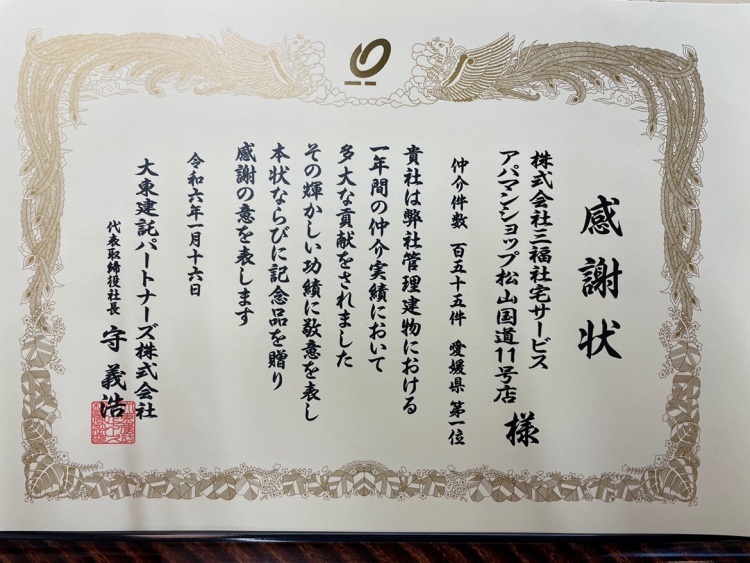 感謝状
株式会社三福社宅サービス
アパマンショップ松山国道11号店 様
仲介件数 百五十五件 愛媛県 第一位
貴社は弊社管理建物における
一年間の仲介実績において
多大な貢献をされました
その輝かしい功績に敬意を表し
本状ならびに記念品を贈り
感謝の意を表します
令和六年一月十六日
大東建託パートナーズ株式会社
代表取締役社長 守 義浩